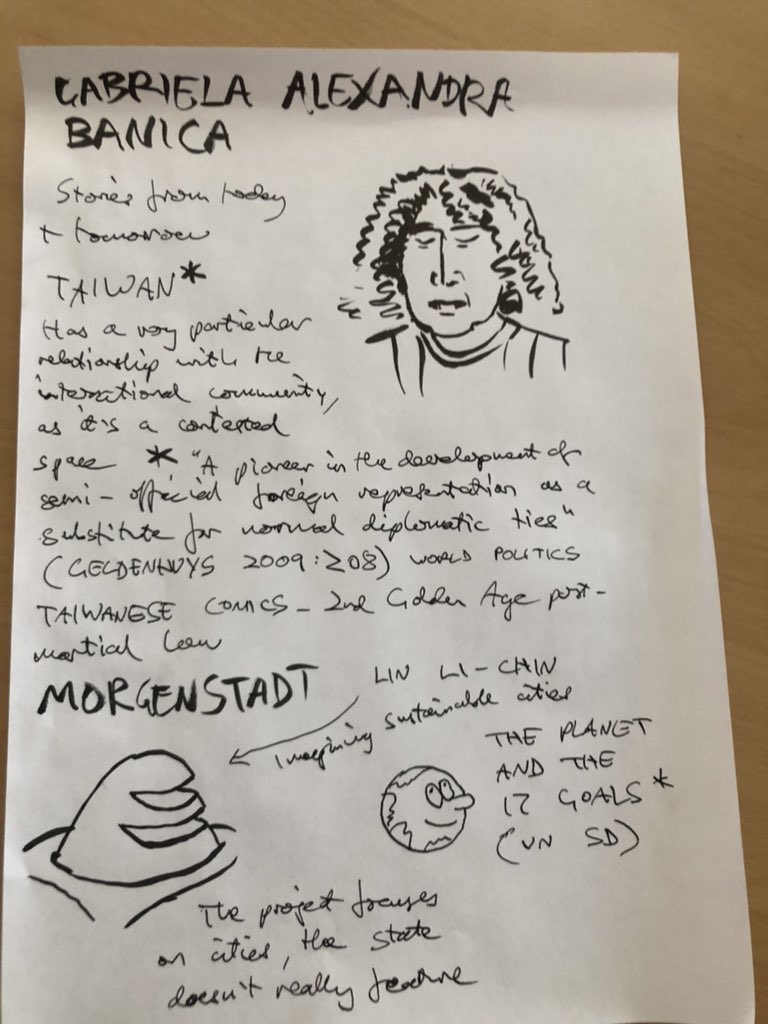 GABRIELA ALEXANDRA
BANICA
Stories from today
+ tomorrow
TAIWAN*
Has a very particular
relationship with the
international community,
as it's a contested
space * "A pioneer in the development of
semi-official foreign representation as a
substitute for normal diplomatic ties"
(GELDENHUYS 2009:208) WORLD POLITICS
TAIWANESE COMICS - 2nd Golden Age post-
martial law
MORGENSTADT
LIN LI-CHIN
Imagining sustainable cities
THE PLANET
AND THE
17 GOALS*
(UN SD)
The project focuses
on cities, the state
doesn't really feature